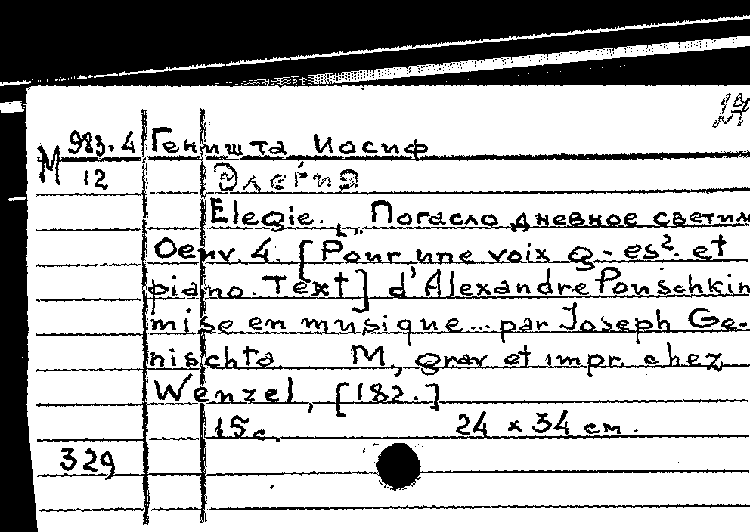 27
М 983.4 Геништа Иосиф
12 Элегия
Elegie. „Погасло дневное светим
Oeuv. 4. [Pour une voix g-es². et
piano. Text] d'Alexandre Pouschkin
mise en musique... par Joseph Ge-
nischta M., grav et impr. chez
Wenzel, [182.]
15 с. 24 x 34 cm.
329